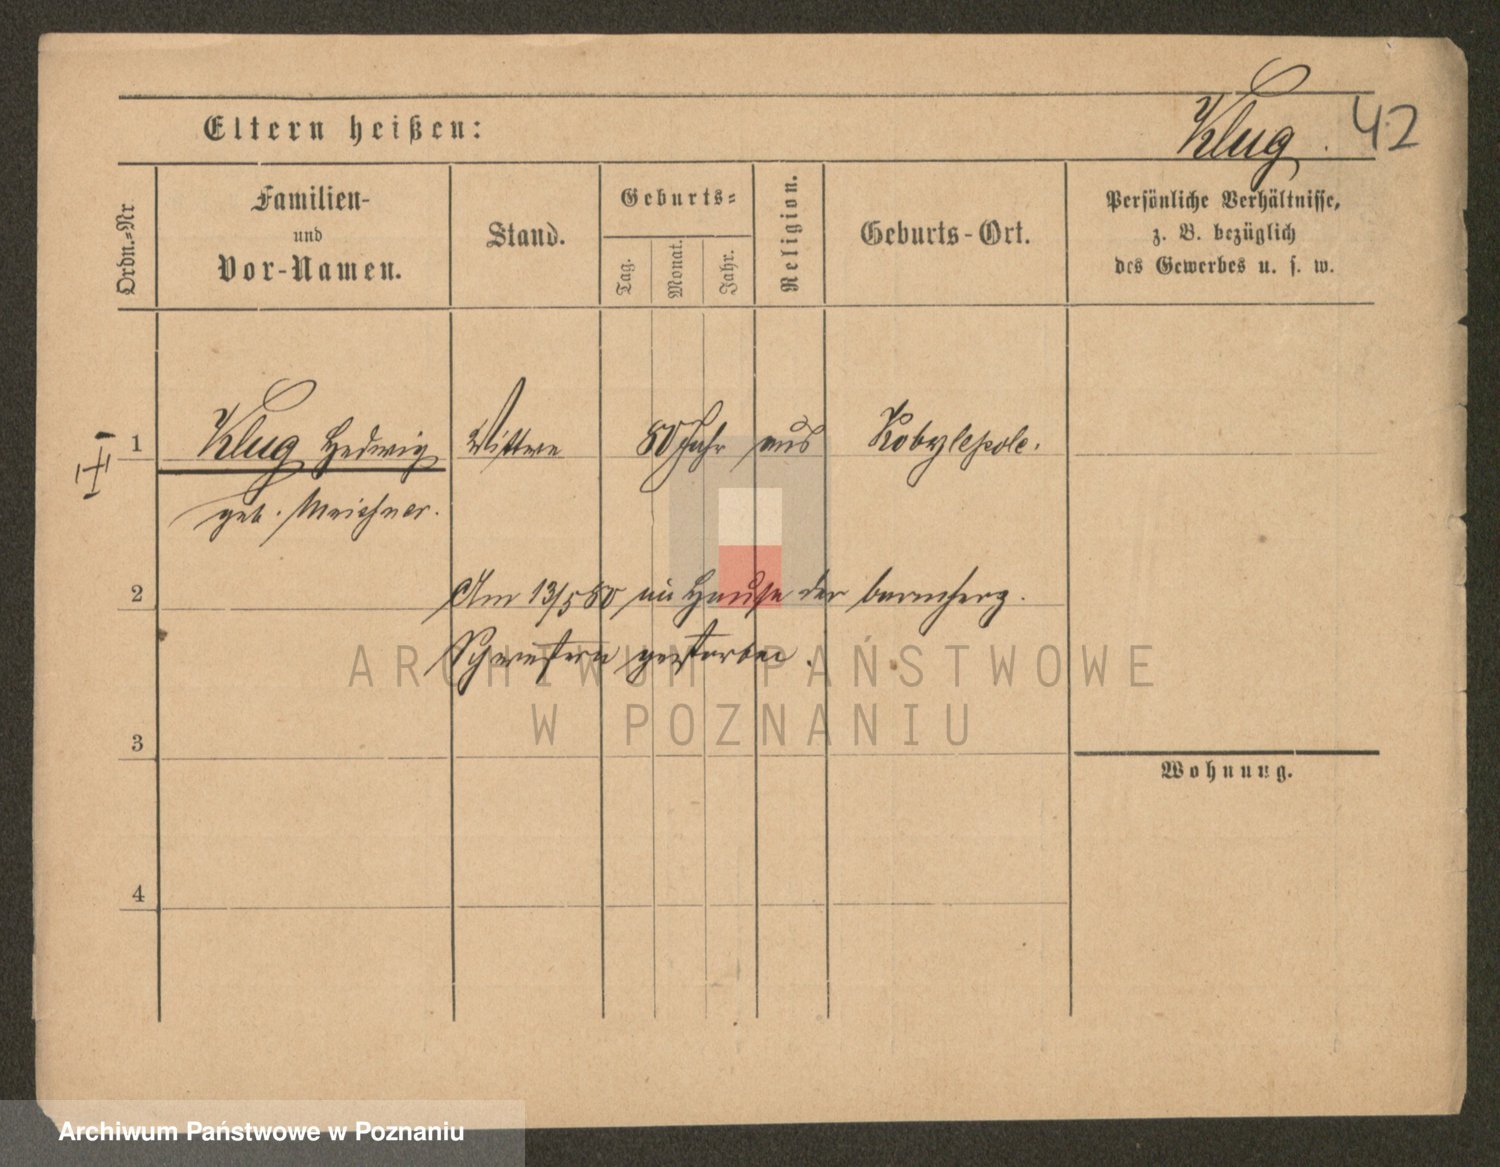 Klug. 42
Eltern heißen:
Ordn.-Nr
Familien-
und
Vor-Namen.
Stand.
Geburts-
Tag.
Monat.
Jahr.
Religion.
Geburts-Ort.
Persönliche Verhältnisse,
z. B. bezüglich
des Gewerbes u. s. w.
1 Klug Hedwig Wittwe 80 Jahr aus Kobylepole.
geb.
2 Am 13/5 80 im Hause der barmherz.
Schwestern gestorben.
3
Wohnung.
4
ARCHIWUM PAŃSTWOWE
W POZNANIU
Archiwum Państwowe w Poznaniu